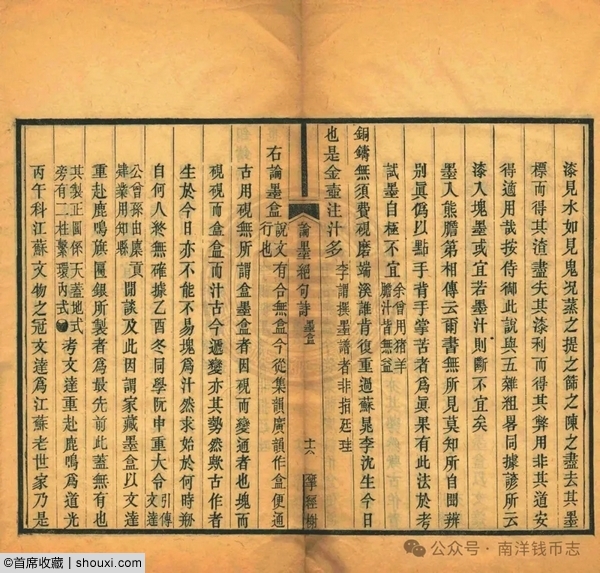 漆見水如見鬼況蒸之提之篩之陳之盡去其墨
標而得其渣盡去其漆利而得其弊用非其道安
得適用哉按侍御此說與五雜組畧同據諺所云
漆入塊墨或宜若墨汁則斷不宜矣
墨入熊膽第相傳云爾書無所見莫知所自聞辨
別眞僞以點手背手掌苦者爲眞果有此法於考
試墨自極不宜余曾用猪羊膽汁皆無益
銅鑄無須費硯磨端溪誰肯復重過蘇晁李沈生今日
也是金壺注汁多李謂撰墨譜者非指廷珪
論墨絕句詩 墨盒 十六 擘經榭
右論墨盒說文有合無盒今從集韻廣韻作盒便通行也
古用硯無所謂盒墨盒者因硯而變通者也塊而
硯硯而盒盒而汁古今遞變亦其勢然歟古作者
生於今日亦不能不易塊爲汁然求始於何時剏
自何人終無確據乙酉冬同學阮申重大令引傳文達
公曾孫由廩貢肄業用知縣閒談及此因謂家藏墨盒以文達
重赴鹿鳴旗匾銀所製者爲最先前此蓋無有也
其製正圓係天蓋地式旁有二柱繫環內式考文達重赴鹿鳴爲道光
丙午科江蘇文物之冠文達爲江蘇老世家乃是
@首席收藏 | shouxi.com
公众号 · 南洋钱币志